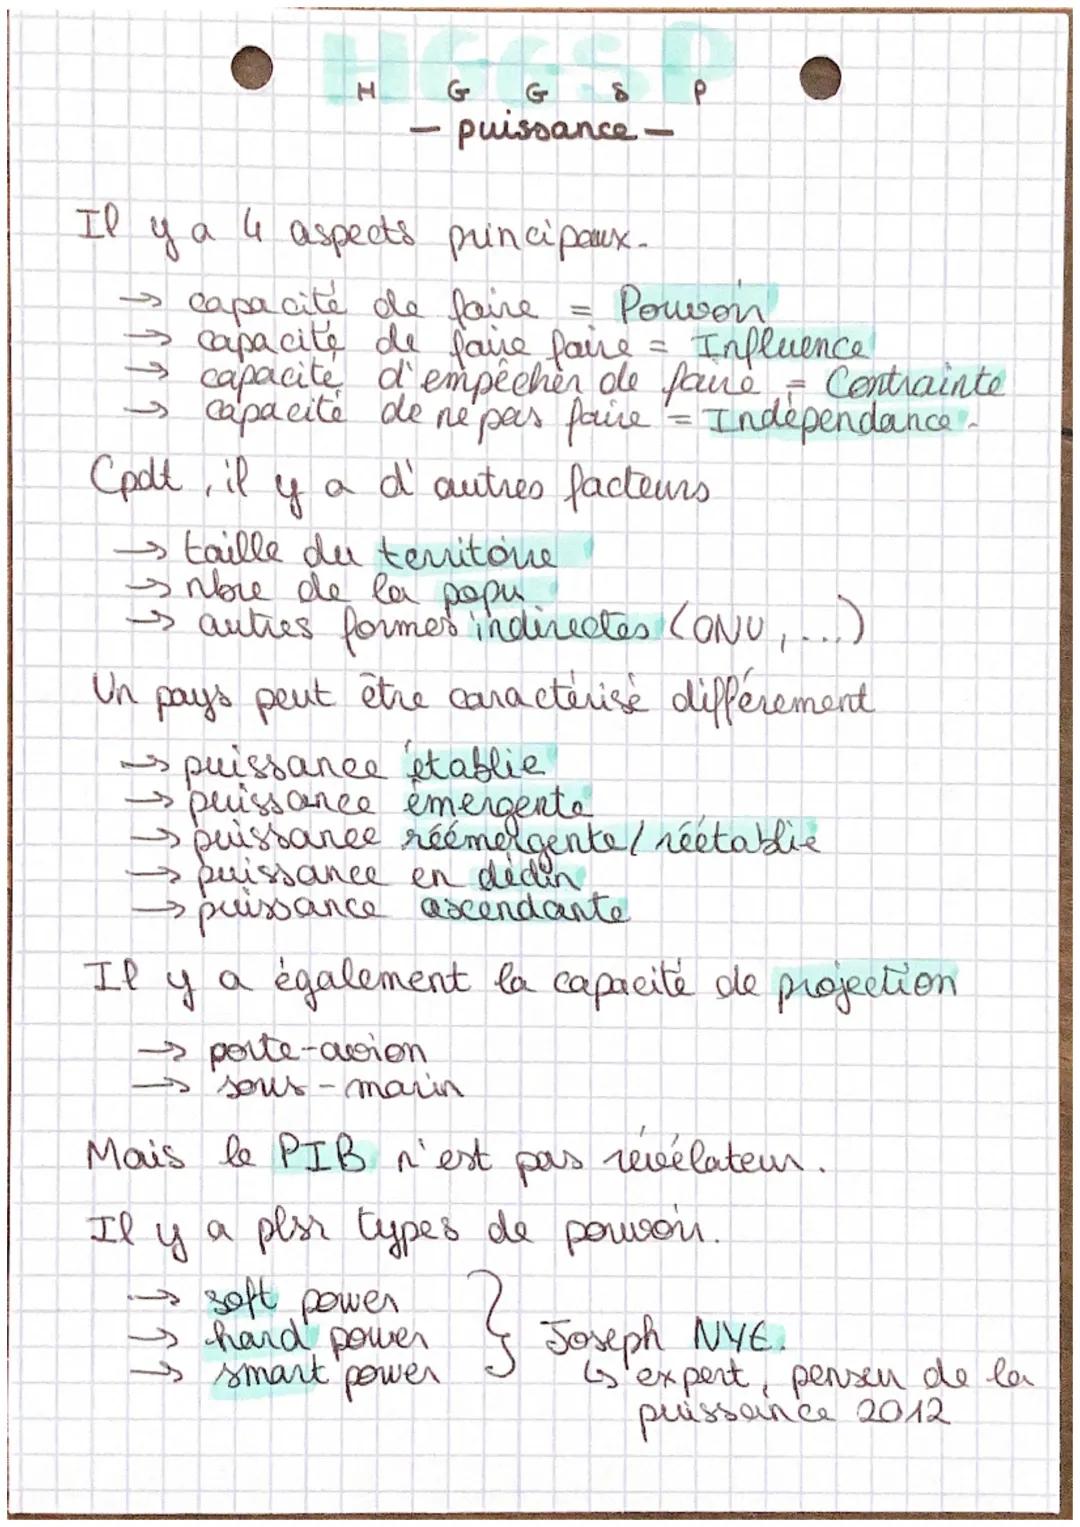 HGGSP
H G G S P
— puissance —
Il y a 4 aspects principaux.
→ capacité de faire = Pouvoir
→ capacité de faire faire = Influence
→ capacité d'empêcher de faire = Contrainte
→ capacité de ne pas faire = Indépendance.
Cpdt, il y a d'autres facteurs
→ taille du territoire
→ nbre de la popu
→ autres formes indirectes (ONU, ...)
Un pays peut être caractérisé différement
→ puissance établie
→ puissance émergente
→ puissance réémergente / réétablie
→ puissance en déclin
→ puissance ascendante
Il y a également la capacité de projection
→ porte-avion
→ sous-marin
Mais le PIB n'est pas révélateur.
Il y a plsr types de pouvoir.
→ soft power
→ hard power } Joseph NYE.
→ smart power ↳ expert, penseur de la
puissance 2012